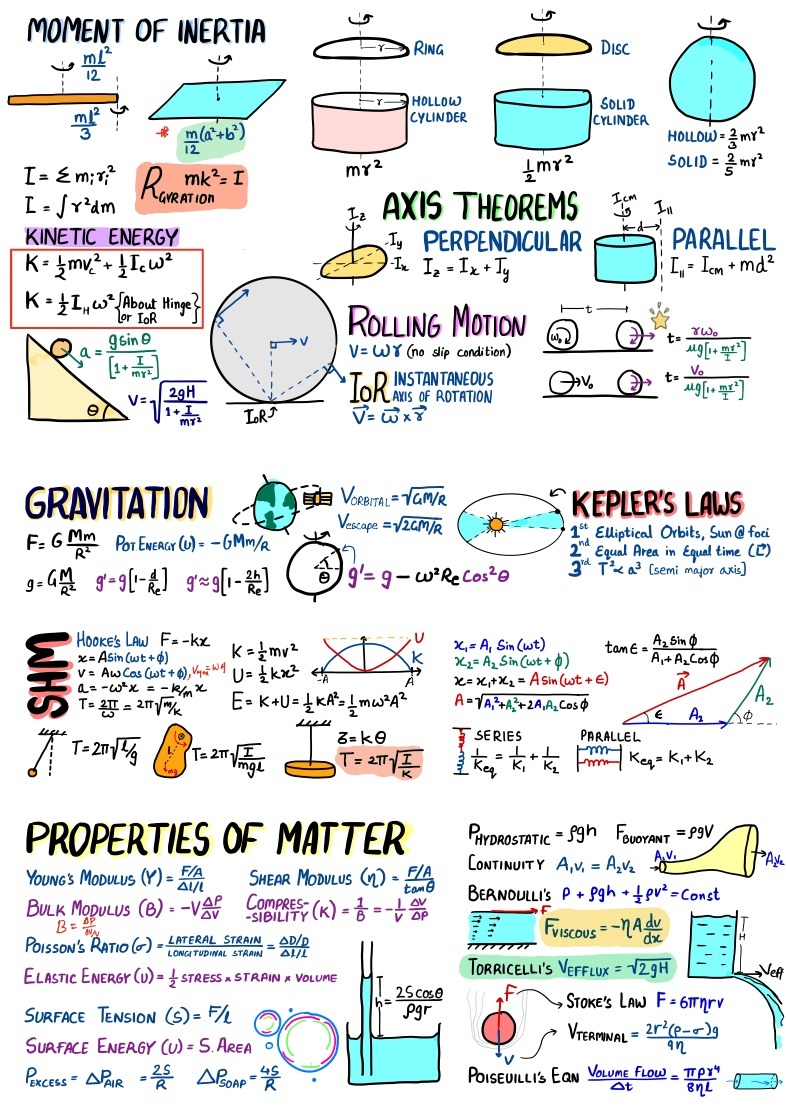 MOMENT OF INERTIA
ml²/12
ml²/3
* m/12(a²+b²)
r RING
r HOLLOW CYLINDER
mr²
DISC
SOLID CYLINDER
½mr²
HOLLOW = 2/3 mr²
SOLID = 2/5 mr²
I = Σmᵢrᵢ²
I = ∫r²dm
R GYRATION mk² = I
KINETIC ENERGY
K = ½mv_c² + ½I_cω²
K = ½I_Hω² {About Hinge or IoR}
a = gsinθ/[1+I/mr²]
θ
V = √(2gH/(1+I/mr²))
AXIS THEOREMS
I_z
I_y
I_x
PERPENDICULAR
I_z = I_x + I_y
I_cm
d
I_||
PARALLEL
I_|| = I_cm + md²
V
IoR
ROLLING MOTION
V = ωr (no slip condition)
IoR INSTANTANEOUS AXIS OF ROTATION
V⃗ = ω⃗ × r⃗
t
ω₀
t = rω₀/μg[1+mr²/I]
V₀
t = V₀/μg[1+mr²/I]
GRAVITATION
V_ORBITAL = √GM/R
V_escape = √2GM/R
F = G Mm/R²
POT ENERGY (U) = -GMm/R
g = G M/R²
g' = g[1-d/Re]
g' ≈ g[1-2h/Re]
θ
g' = g - ω²Re Cos²θ
KEPLER'S LAWS
1st Elliptical Orbits, Sun @ foci
2nd Equal Area in Equal time (L⃗)
3rd T² ∝ a³ [semi major axis]
SHM
HOOKE'S LAW F = -kx
x = Asin(ωt+φ)
v = Aω Cos(ωt+φ), Vmax = ωA
a = -ω²x = -k/m x
T = 2π/ω = 2π√m/k
K = ½mv²
U = ½kx²
E = K+U = ½kA² = ½mω²A²
U
K
-A
A
T = 2π√l/g
l
mg
T = 2π√(I/mgl)
τ = kθ
T = 2π√(I/k)
x₁ = A₁ Sin(ωt)
x₂ = A₂ Sin(ωt+φ)
x = x₁+x₂ = A sin(ωt+ε)
A = √(A₁²+A₂²+2A₁A₂Cosφ)
tan ε = A₂ sinφ/A₁+A₂Cosφ
A⃗
A₂
ε
A₁
φ
SERIES
1/Keq = 1/K₁ + 1/K₂
PARALLEL
Keq = K₁+K₂
PROPERTIES OF MATTER
YOUNG'S MODULUS (Y) = F/A / Δl/l
SHEAR MODULUS (η) = F/A / tanθ
BULK MODULUS (B) = -V ΔP/ΔV
B = ΔP/ΔV/V
COMPRES-SIBILITY (K) = 1/B = -1/V ΔV/ΔP
POISSON'S RATIO (σ) = LATERAL STRAIN/LONGITUDINAL STRAIN = ΔD/D / Δl/l
ELASTIC ENERGY (U) = ½ STRESS × STRAIN × VOLUME
SURFACE TENSION (S) = F/l
SURFACE ENERGY (U) = S.AREA
P_EXCESS = ΔP_AIR = 2S/R
ΔP_SOAP = 4S/R
h = 2S cosθ/ρgr
P_HYDROSTATIC = ρgh
F_BUOYANT = ρgV
CONTINUITY A₁V₁ = A₂V₂
A₁V₁
A₂V₂
BERNOULLI'S P + ρgh + ½ρV² = Const
F
F_VISCOUS = -ηA dv/dx
H
V_eff
TORRICELLI'S V_EFFLUX = √2gH
F
V
STOKE'S LAW F = 6πηrv
V_TERMINAL = 2r²(ρ-σ)g/9η
POISEUILLI'S EQN VOLUME FLOW/Δt = πPr⁴/8ηl